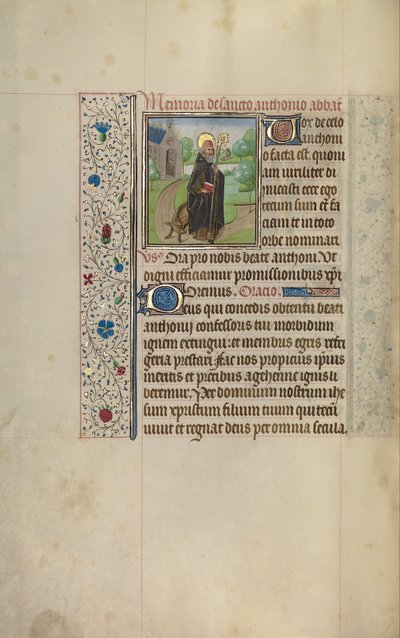 Memoria de sancto anthonio abbate
Vox de celo
anthoni
o facta est. quoni
am viriliter di
micasti ecce ego
tecum sum et fa
ciam te in toto
orbe nominari
Vs. Ora pro nobis beate anthoni. Vt
digni efficiamur promissionibus xpi
Oremus. Oracio.
Deus qui concedis obtentu beati
anthonii confessoris tui morbidum
ignem extingui: et membris egris refri
geria prestari fac nos propicius ipsius
meritis et precibus a gehenne ignis li
beremur. Per dominum nostrum ihe
sum xpistum filium tuum qui tecum
viuit et regnat deus per omnia secula.